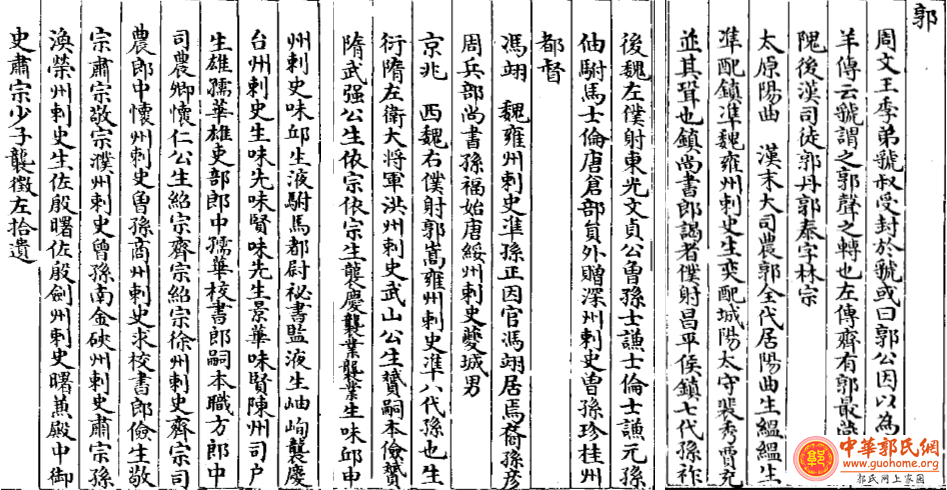 郭
周文王季弟虢叔受封於虢或曰郭公因以為
羊傳云虢謂之郭聲之轉也左傳齊有郭最
隗後漢司徒郭丹郭泰字林宗
太原陽曲 漢末大司農郭全代居陽曲生縕縕生
準配鎮準魏雍州刺史生奕配城陽太守裴秀賈充
並其聓也鎮尚書郎謁者僕射昌平侯鎮七代孫祚
後魏左僕射東光文貞公曾孫士謙士倫士謙元孫
伷駙馬士倫唐倉部員外贈深州刺史曾孫珍桂州
都督
馮翊 魏雍州刺史準孫正因官馮翊居焉裔孫彦
周兵部尚書孫福始唐綏州刺史夔城男
京兆 西魏右僕射郭嵩雍州刺史準八代孫也生
衍隋左衛大將軍洪州刺史武山公生贇嗣本儉贇
隋武强公生依宗依宗生襲慶襲業襲業生味邱申
州刺史味邱生液駙馬都尉祕書監液生岫峋襲慶
台州刺史生味先味賢味先生景華味賢陳州司户
生雄孺華雄吏部郎中孺華校書郎嗣本職方郎中
司農卿懷仁公生紹宗齊宗紹宗徐州刺史齊宗司
農郎中懷州刺史曾孫商州刺史求校書郎儉生敬
宗肅宗敬宗濮州刺史曾孫南金硤州刺史肅宗孫
渙榮州刺史生佐殷曙佐殷劍州刺史曙兼殿中御
史肅宗少子襲徵左拾遺
中華郭氏網
www.guohome.org
郭氏网上家園